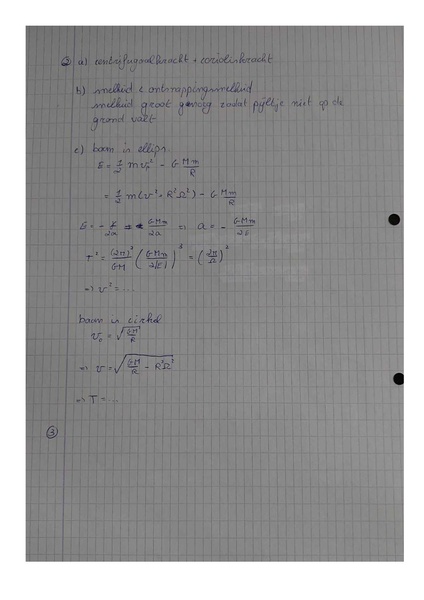 ② a) centrifugaalkracht + corioliskracht
b) snelheid < ontsnappingssnelheid
snelheid groot genoeg zodat pijltje niet op de
grond valt
c) baan is ellips
E = 1/2 m v₀² - G Mm/R
= 1/2 m(v² + R²Ω²) - G Mm/R
E = - GMm/2a ⇒ a = - GMm/2E
T² = (2π)²/GM (GMm/2|E|)³ = (2π/Ω)²
⇒ v² = ...
baan is cirkel
v₀ = √(GM/R)
⇒ v = √(GM/R - R²Ω²)
⇒ T = ...
③